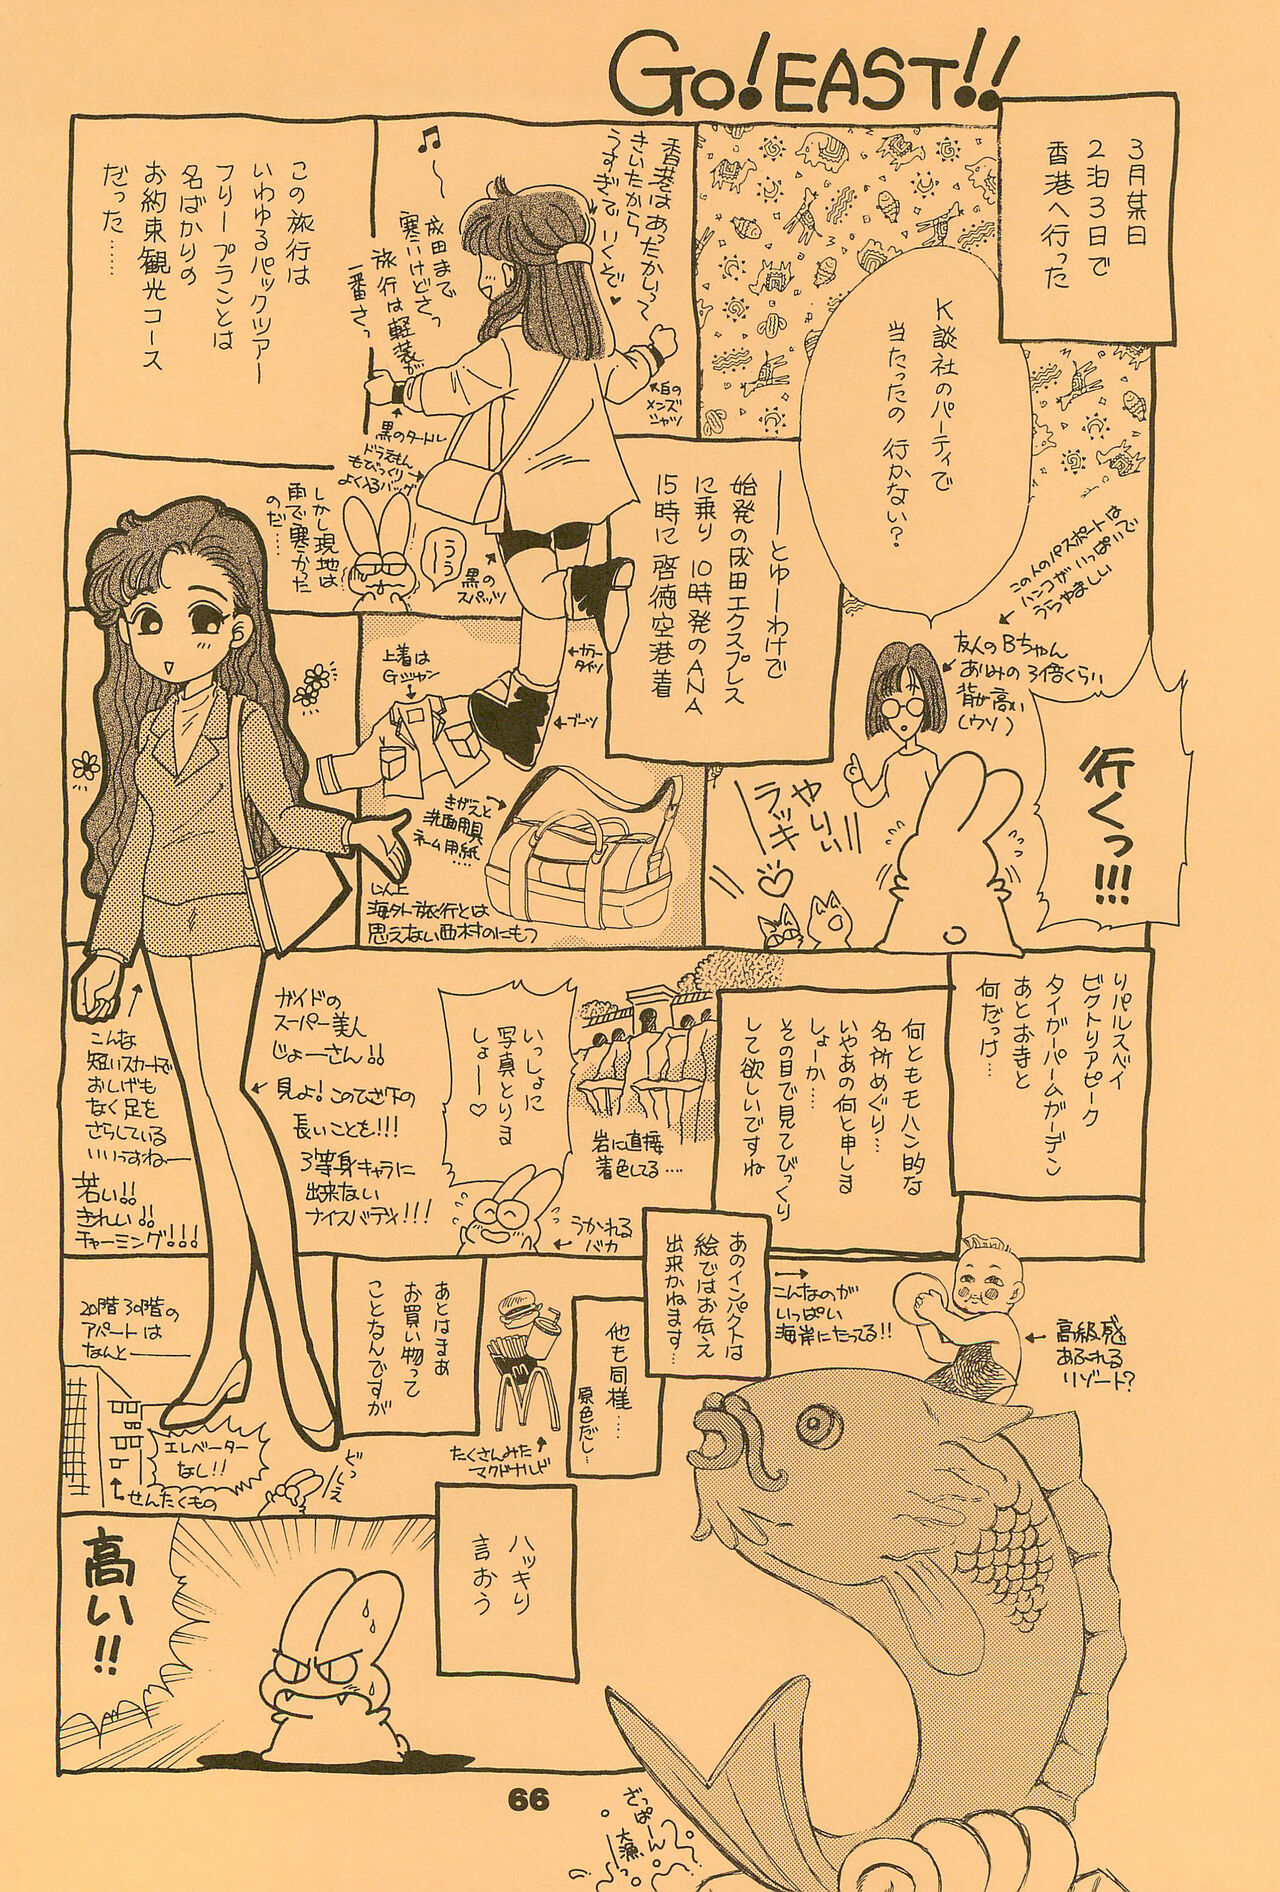 Go!EAST!!
3月某日
2泊3日で
香港へ行った
K談社のパーティで
当たったの 行かない?
この人のパスポートは
ハンコがいっぱいで
うらやましい
友人のBちゃん
あゆみの3倍くらい
背が高い
(ウソ)
行くっ!!!
やりぃ!!
ラッキ
香港はあったかいって
きいたから
うすぎで
いくぞ♥
成田まで
寒いけどさっ
旅行は軽装が
一番さっ
白の
メンズ
シャツ
黒のタートル
ドラえもん
もびっくり
よく入るバッグ
黒の
スパッツ
カラー
タイツ
ブーツ
この旅行は
いわゆるパックツアー
フリープランとは
名ばかりの
お約束観光コース
だった……
――とゆーわけで
始発の成田エクスプレス
に乗り 10時発のANA
15時に 啓徳空港着
しかし現地は
雨で寒かった
のだ……
うぅ
うぅ
上着は
Gジャン
きがえと
洗面用具
ネーム用紙
……
海外旅行とは
思えない西村のにもつ
リパルスベイ
ビクトリアピーク
タイガーバームガーデン
あとお寺と
何だっけ…
何ともモハン的な
名所めぐり…
いやあの何と申しま
しょーか……
その目で見てびっくり
して欲しいですね
岩に直接
着色してる….
いっしょに
写真とりま
しょー♡
うかれる
バカ
ガイドの
スーパー美人
じょーさん!!
見よ!このひざ下の
長いことを!!!
3等身キャラに
出来ない
ナイスバディ!!!
こんな
短いスカートで
おしげも
なく足を
さらしている
いいっすねー
若い!!
きれい!!
チャーミング!!!
あのインパクトは
絵ではお伝え
出来かねます…
こんなのが
いっぱい
海岸にたってる!!
高級感
あふれる
リゾート?
他も同様……
原色だし…
たくさんみた
マクドナルド
あとはまぁ
お買い物って
ことなんですが
20階30階の
アパートは
なんと―――
エレベーター
なし!!
せんたくもの
どっしぇ
ハッキリ
言おう
高い!!
ざっぱーん
大漁
66